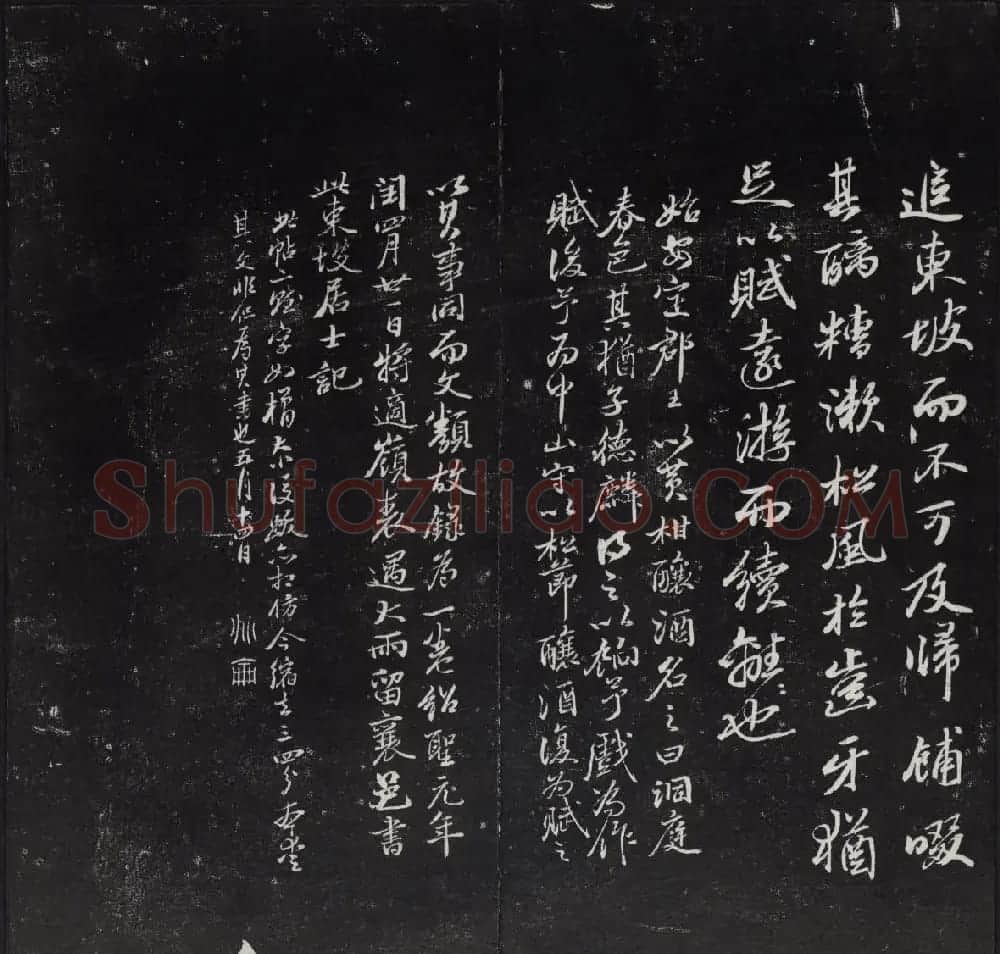 追東坡而不可及歸餔啜
其醨糟漱松風於齒牙猶
足以賦遠游而續離騷也
始安定郡王以黃柑釀酒名之曰洞庭
春色其猶子德麟得之以餉予戲為作
賦後予為中山守以松節釀酒復為賦之
以其事同而文類故錄為一卷紹聖元年
閏四月廿一日將適嶺表遇大雨留襄邑書
此東坡居士記
此帖二賦字如
今縮去三四分
其文非但為其書也五月十 日
Shufaziliao.COM